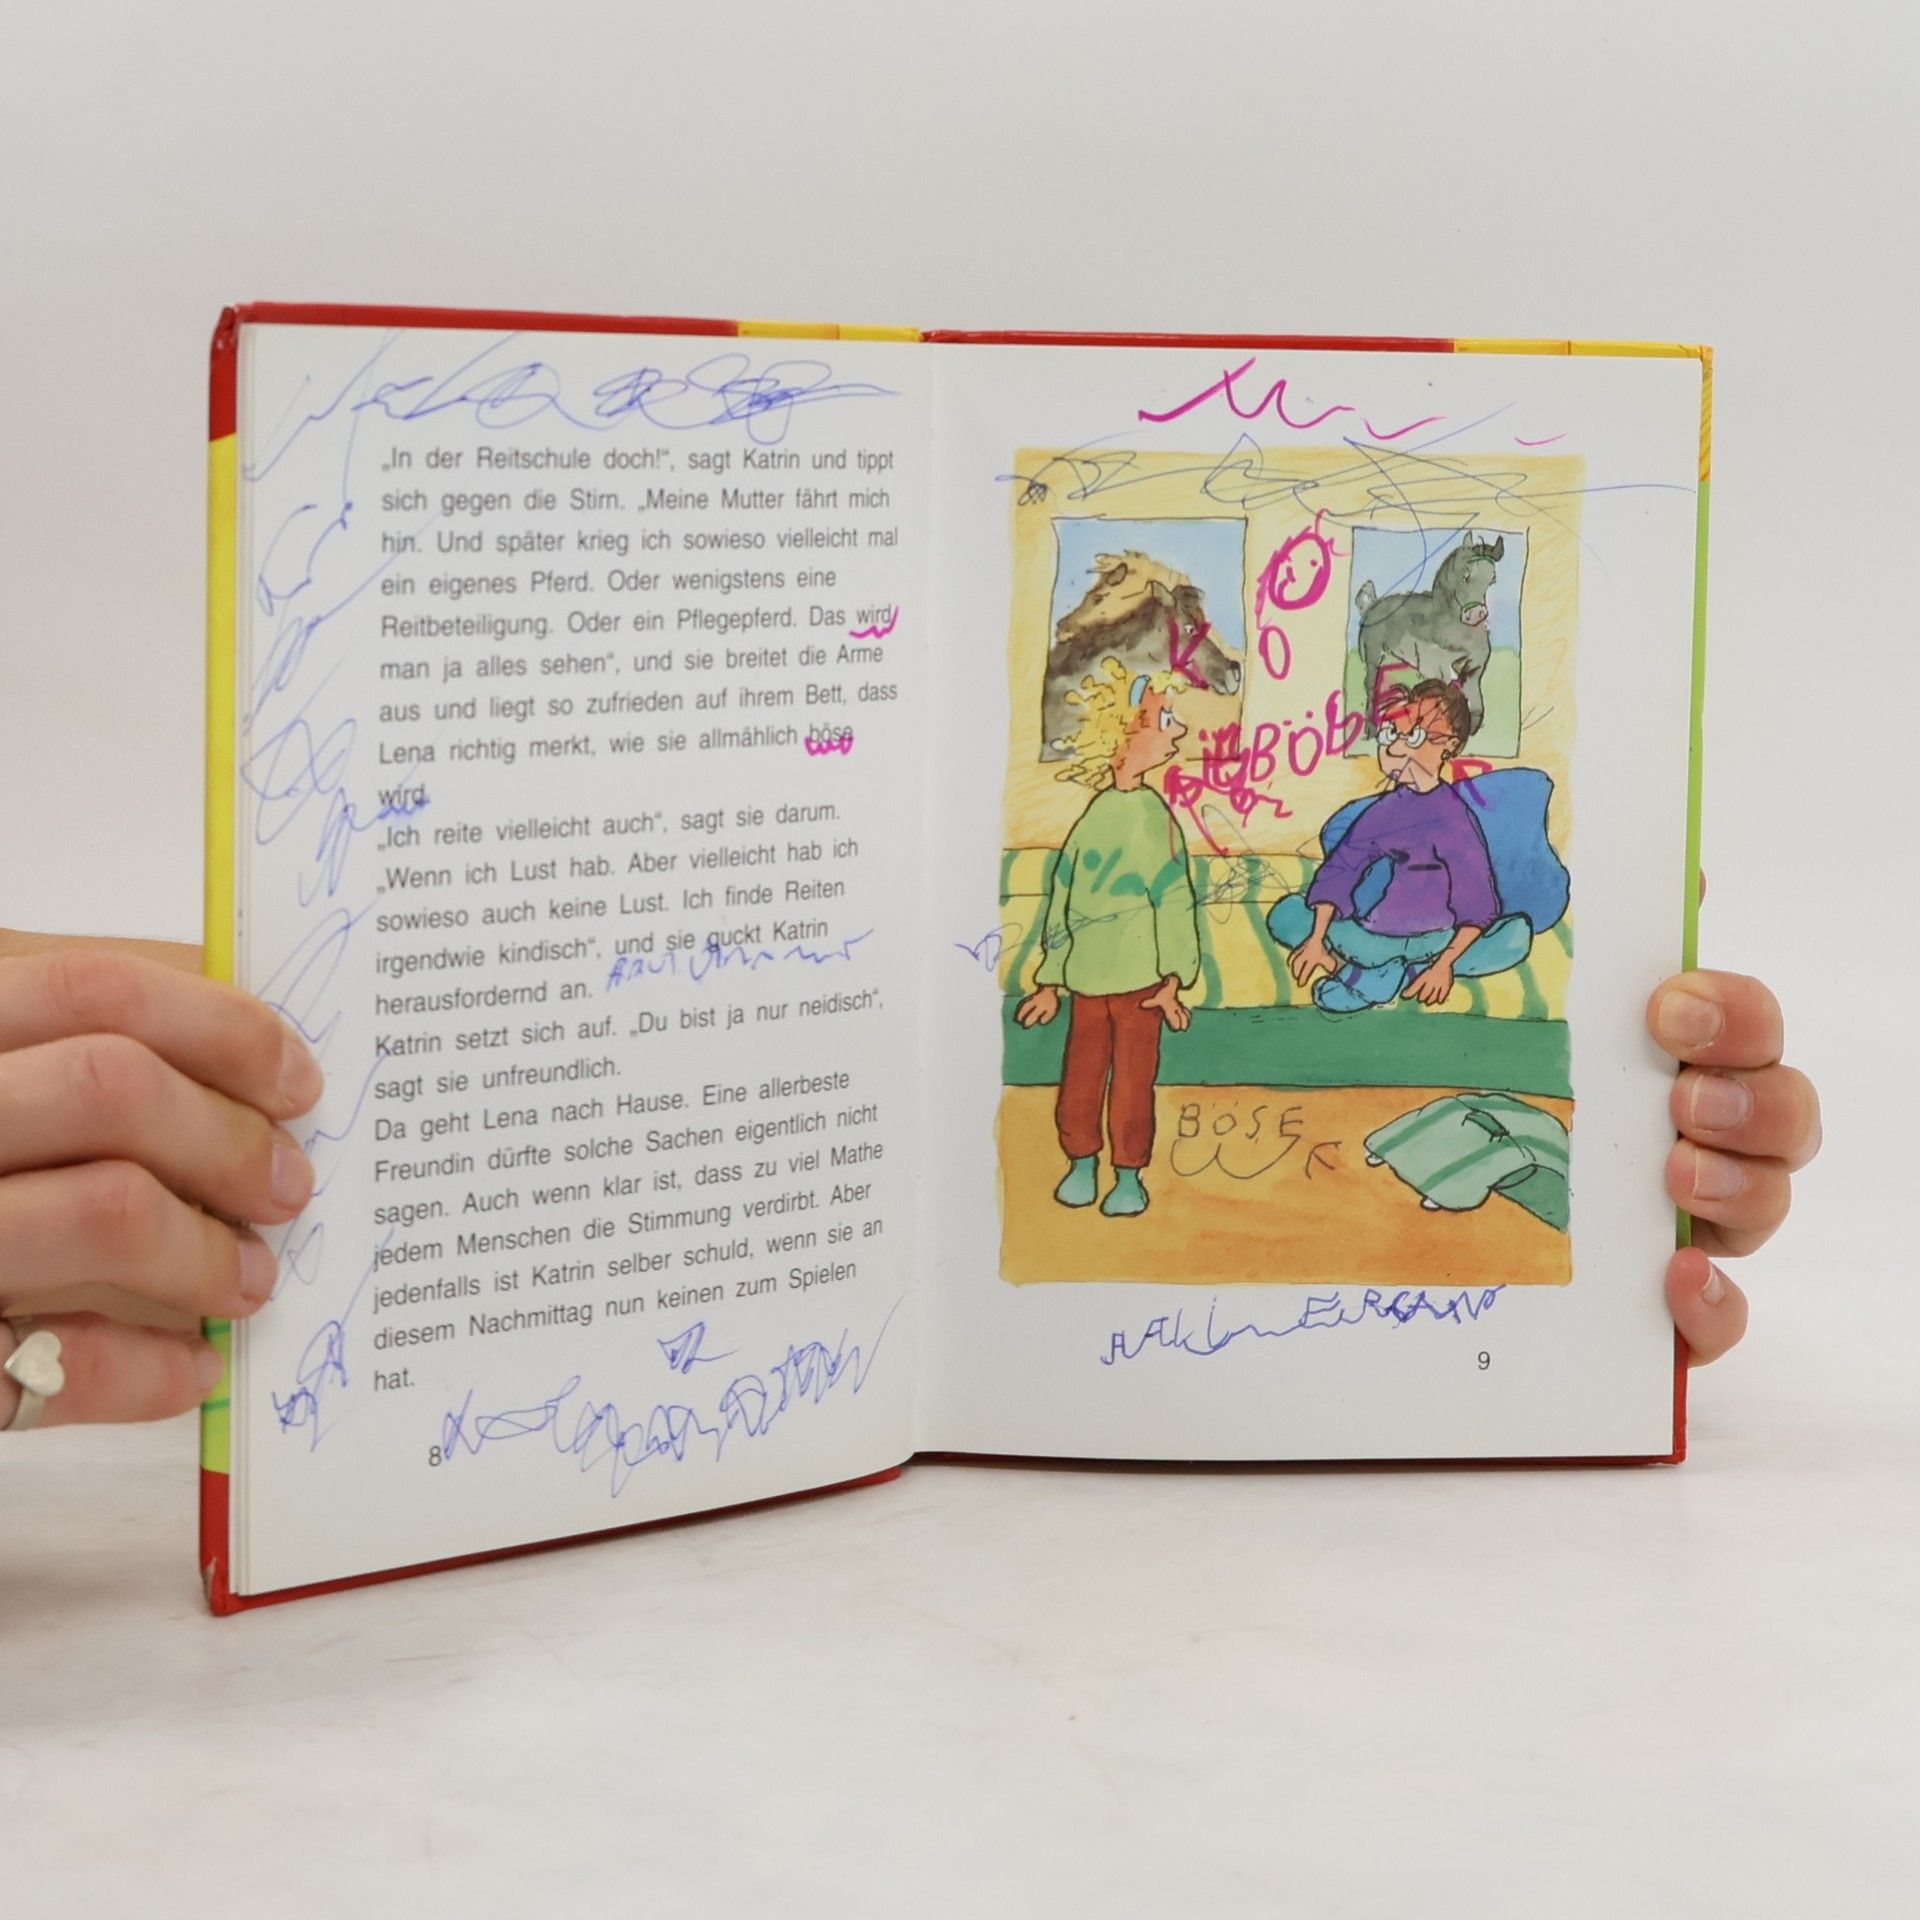 „In der Reitschule doch!“, sagt Katrin und tippt
sich gegen die Stirn. „Meine Mutter fährt mich
hin. Und später krieg ich sowieso vielleicht mal
ein eigenes Pferd. Oder wenigstens eine
Reitbeteiligung. Oder ein Pflegepferd. Das wird
man ja alles sehen“, und sie breitet die Arme
aus und liegt so zufrieden auf ihrem Bett, dass
Lena richtig merkt, wie sie allmählich böse
wird.
„Ich reite vielleicht auch“, sagt sie darum.
„Wenn ich Lust hab. Aber vielleicht hab ich
sowieso auch keine Lust. Ich finde Reiten
irgendwie kindisch“, und sie guckt Katrin
herausfordernd an.
Katrin setzt sich auf. „Du bist ja nur neidisch“,
sagt sie unfreundlich.
Da geht Lena nach Hause. Eine allerbeste
Freundin dürfte solche Sachen eigentlich nicht
sagen. Auch wenn klar ist, dass zu viel Mathe
jedem Menschen die Stimmung verdirbt. Aber
jedenfalls ist Katrin selber schuld, wenn sie an
diesem Nachmittag nun keinen zum Spielen
hat.
8
K O
BÖBE
BÖSE
9